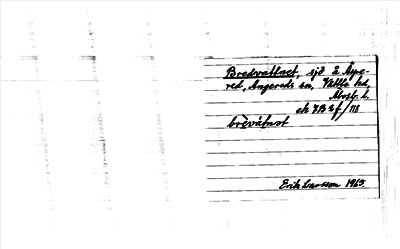 Bredvattnet, sjö S. Äspe-
red, Angereds sn, Vättle hd,
Älvsb. l.
ek 7B 2f/III
brèvátnɛt
Erik Larsson 1963.